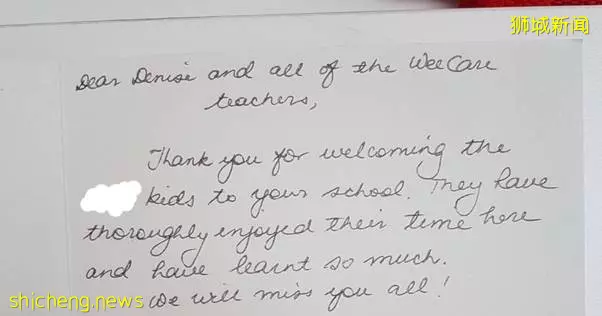 狮城新闻
Dear Denise and all of the WeeCare
teachers,
Thank you for welcoming the
kids to your school. They have
thoroughly enjoyed their time here
and have learnt so much.
We will miss you all!
shicheng.news